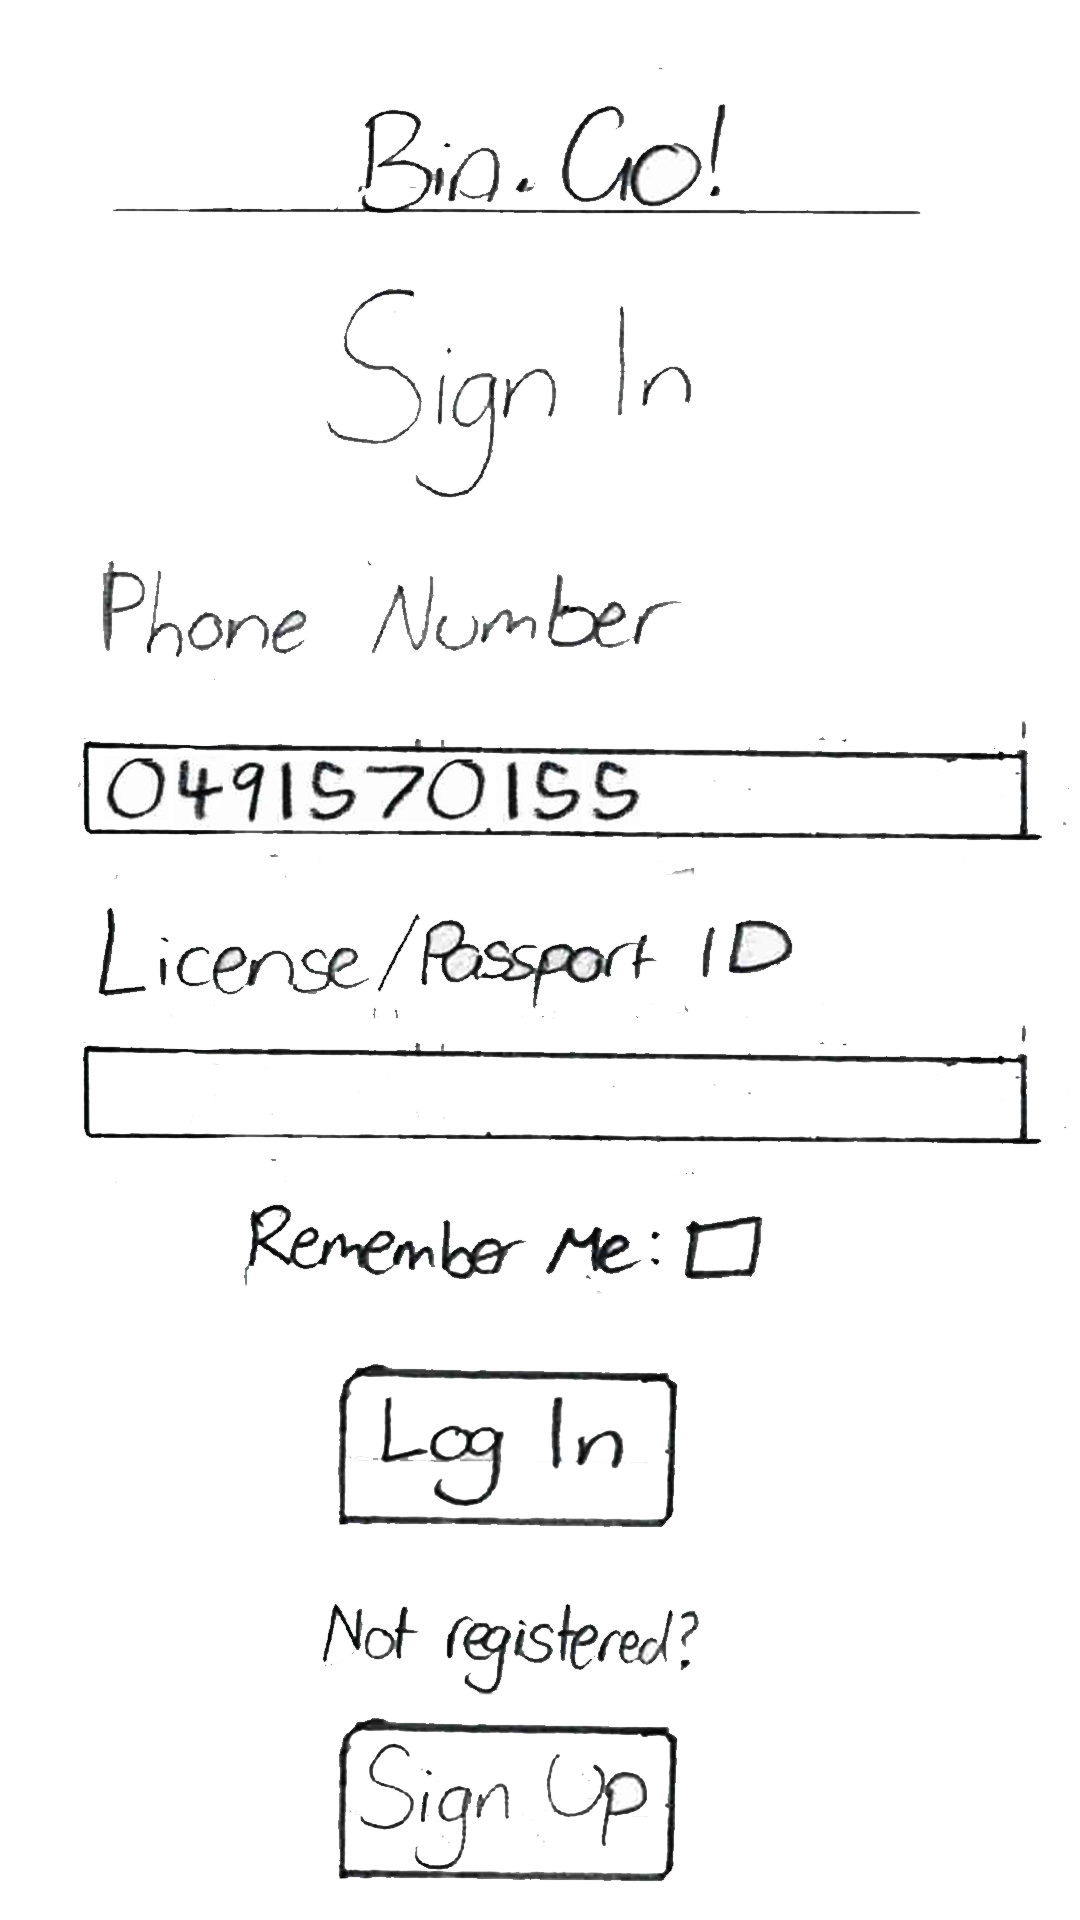 Bin.Go!
Sign In
Phone Number
0491570155
License/Passport ID
Remember Me:
Log In
Not registered?
Sign Up